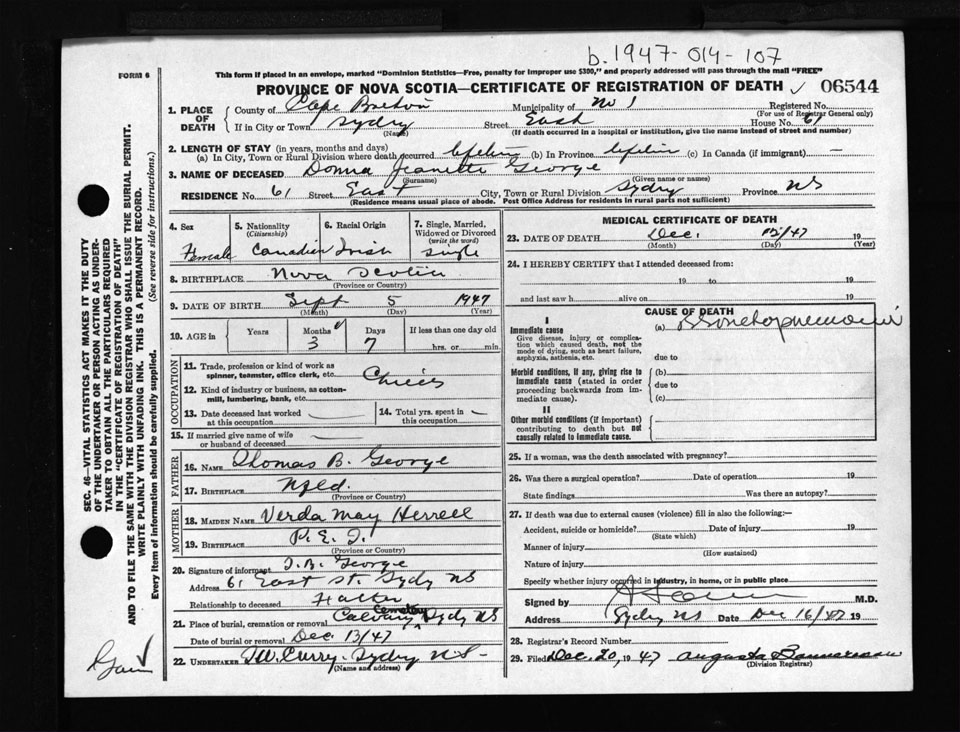 b. 1947-014-107
FORM 6
This form if placed in an envelope, marked "Dominion Statistics—Free, penalty for improper use $300," and properly addressed will pass through the mail "FREE"
PROVINCE OF NOVA SCOTIA—CERTIFICATE OF REGISTRATION OF DEATH 06544
1. PLACE OF DEATH
County of Cape Breton Municipality of No 1 Registered No.
(For use of Registrar General only)
If in City or Town Sydny Street East House No. 61
(Name) (If death occurred in a hospital or institution, give the name instead of street and number)
2. LENGTH OF STAY (in years, months and days)
(a) In City, Town or Rural Division where death occurred lifetim (b) In Province lifetim (c) In Canada (if immigrant) —
3. NAME OF DECEASED Donna Jeanette George
(Surname) (Given name or names)
RESIDENCE No. 61 Street East City, Town or Rural Division Sydny Province NS
(Residence means usual place of abode. Post Office Address for residents in rural parts not sufficient)
4. Sex Female
5. Nationality (Citizenship) Canadian
6. Racial Origin Irish
7. Single, Married, Widowed or Divorced (write the word) Single
8. BIRTHPLACE Nova Scotia
(Province or Country)
9. DATE OF BIRTH Sept 5 1947
(Month) (Day) (Year)
10. AGE in Years Months 3 Days 7 If less than one day old
hrs. or min.
OCCUPATION
11. Trade, profession or kind of work as spinner, teamster, office clerk, etc.
12. Kind of industry or business, as cotton-mill, lumbering, bank, etc.
13. Date deceased last worked at this occupation
14. Total yrs. spent in this occupation
15. If married give name of wife or husband of deceased
FATHER
16. NAME Thomas B. George
17. BIRTHPLACE Nfld.
(Province or Country)
MOTHER
18. MAIDEN NAME Verda May Herrell
19. BIRTHPLACE P. E. I.
(Province or Country)
20. Signature of informant T. B. George
Address 61 East St. Sydy NS
Relationship to deceased Father
21. Place of burial, cremation or removal Calvary Cemetery Sydy NS
Date of burial or removal Dec. 13/47
22. UNDERTAKER T.W. Curry. Sydny N.S.
(Name and address)
MEDICAL CERTIFICATE OF DEATH
23. DATE OF DEATH Dec. 12/47 19
(Month) (Day) (Year)
24. I HEREBY CERTIFY that I attended deceased from:
19 to 19
and last saw h alive on 19
CAUSE OF DEATH
I
Immediate cause
Give disease, injury or complication which caused death, not the mode of dying, such as heart failure, asphyxia, asthenia, etc.
(a) Bronchopneumonia
due to
Morbid conditions, if any, giving rise to immediate cause (stated in order proceeding backwards from immediate cause)
(b)
due to
(c)
II
Other morbid conditions (if important) contributing to death but not causally related to immediate cause.
25. If a woman, was the death associated with pregnancy?
26. Was there a surgical operation? Date of operation 19
State findings Was there an autopsy?
27. If death was due to external causes (violence) fill in also the following:—
Accident, suicide or homicide? Date of injury 19
(State which)
Manner of injury
(How sustained)
Nature of injury
Specify whether injury occurred in industry, in home, or in public place
Signed by M.D.
Address Sydny NS Date Dec 16/47 19
28. Registrar's Record Number
29. Filed Dec. 20, 1947 Augusta
(Division Registrar)
SEC. 46—VITAL STATISTICS ACT MAKES IT THE DUTY
OF THE UNDERTAKER OR PERSON ACTING AS UNDER-
TAKER TO OBTAIN ALL THE PARTICULARS REQUIRED
IN THE "CERTIFICATE OF REGISTRATION OF DEATH"
AND TO FILE THE SAME WITH THE DIVISION REGISTRAR WHO SHALL ISSUE THE BURIAL PERMIT.
WRITE PLAINLY WITH UNFADING INK. THIS IS A PERMANENT RECORD.
Every item of information should be carefully supplied. (See reverse side for instructions.)